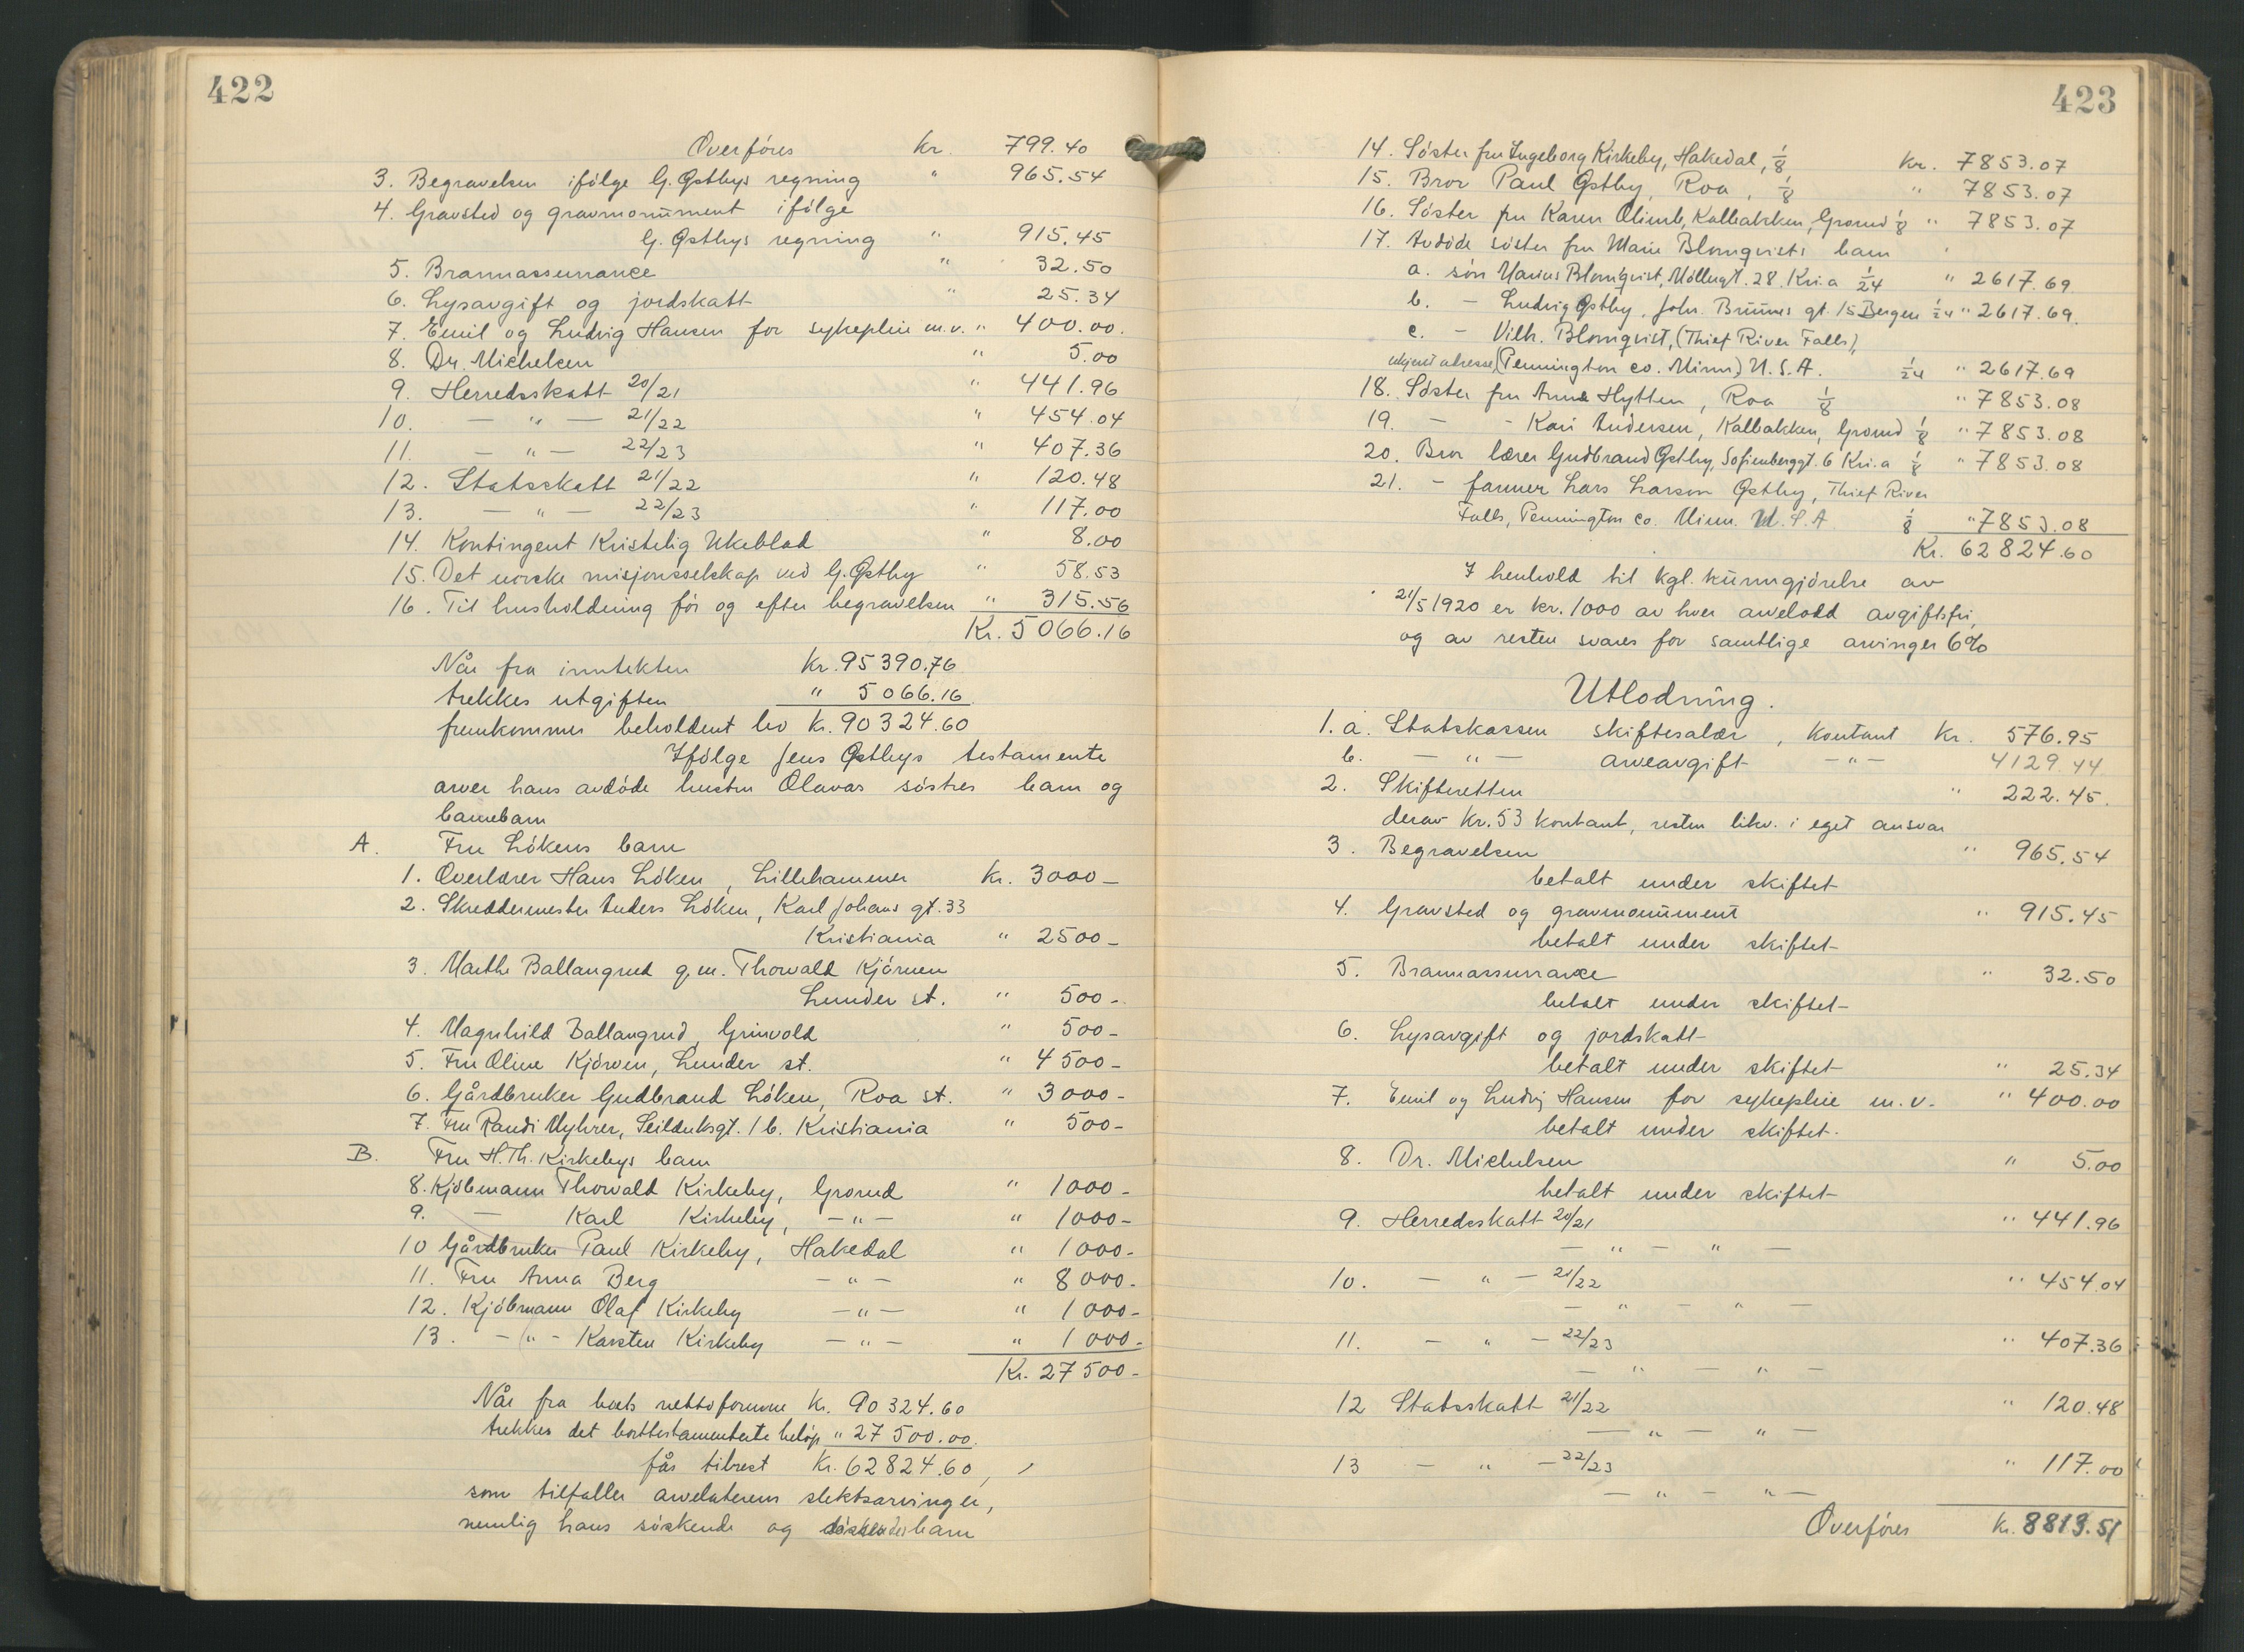 422
Overføres kr. 799.40
3. Begravelsen ifølge G. Østbys regning " 965.54
4. Gravsted og gravmonument ifølge
G. Østbys regning " 915.45
5. Brannassurance " 32.50
6. Lysavgift og jordskatt " 25.34
7. Emil og Ludvig Hansen for sykepleie m.v. " 400.00.
8. Dr. Michelsen " 5.00
9. Herredsskatt 20/21 " 441.96
10. — " — 21/22 " 454.04
11. — " — 22/23 " 407.36
12. Statsskatt 21/22 " 120.48
13. — " — 22/23 " 117.00
14. Kontingent Kristelig Ukeblad " 8.00
15. Det norske misjonsselskap ved G. Østby " 58.53
16. Til husholdning før og efter begravelsen " 315.56
Kr. 5066.16
Når fra inntekten kr. 95390.76
trekkes utgiften " 5066.16
fremkommer beholdent bo kr. 90324.60
Ifølge Jens Østbys testamente
arver hans avdøde hustru Olavas søstres barn og
barnebarn
A. Fru Løkens barn
1. Overlærer Hans Løken, Lillehammer kr. 3000 —
2. Skreddermester Anders Løken, Karl Johans gt. 33
Kristiania " 2500 —
3. Marthe Ballangrud g.m. Thorvald Kjörven
Lunder st. " 500 -
4. Magnhild Ballangrud, Grinvold " 500 -
5. Fru Oline Kjörven, Lunder st. " 4500 -
6. Gårdbruker Gudbrand Løken, Roa st. " 3000 -
7. Fru Randi Myhrer, Seilduksgt. 1 b. Kristiania " 500 -
B. Fru H. Th. Kirkebys barn
8. Kjøbmann Thorvald Kirkeby, Grorud " 1000 -
9. — Karl Kirkeby, — " — " 1000 -
10 Gårdbruker Paul Kirkeby, Hakedal " 1000 -
11. Fru Anna Berg — " — " 8000 -
12. Kjøbmann Olaf Kirkeby — " — " 1000 -
13. - " - Karsten Kirkeby — " — " 1000 -
Kr. 27500 -
Når fra boets nettoformue kr. 90324.60
trekkes det borttestamenterte beløp " 27500.00.
fås tilrest kr. 62824.60,
som tilfaller arvelaterens slektsarvinger,
nemlig hans søskende og søskendebarn
423
14. Søster fru Ingeborg Kirkeby, Hakedal, 1/8 kr. 7853.07
15. Bror Paul Østby, Roa, 1/8 " 7853.07
16. Søster fru Karen Olimb, Kalbakken, Grorud 1/8 " 7853.07
17. Avdøde søster fru Marie Blomqvists barn
a. søn Marius Blomqvist, Møllergt. 28 Kri.a 1/24 " 2617.69
b. — Ludvig Østby, Joh. Bruuns gt. 15 Bergen 1/24 " 2617.69.
c. — Vilh. Blomqvist, (Thief River Falls),
ukjent adresse, (Pennington co. Minn) U.S.A. 1/24 " 2617.69
18. Søster fru Anne Hytten, Roa 1/8 " 7853.08
19. — - Kari Andersen, Kalbakken, Grorud 1/8 " 7853.08
20. Bror lærer Gudbrand Østby, Sofienberggt. 6 Kri.a 1/8 " 7853.08
21. - farmer Lars Larson Østby, Thief River
Falls, Pennington co. Minn. U.S.A. 1/8 " 7853.08
Kr. 62824.60
I henhold til kgl. kunngjørelse av
21/5 1920 er kr. 1000 av hver arvelodd avgiftsfri,
og av resten svares for samtlige arvinger 6%
Utlodning.
1. a. Statskassen skiftesalær, kontant kr. 576.95
b. — " — arveavgift — " — 4129.44
2. Skifteretten " 222.45.
derav kr. 53 kontant, resten likv. i eget ansvar
3. Begravelsen " 965.54
betalt under skiftet
4. Gravsted og gravmonument " 915.45
betalt under skiftet
5. Brannassurance " 32.50
betalt under skiftet
6. Lysavgift og jordskatt
betalt under skiftet " 25.34
7. Emil og Ludvig Hansen for sykepleie m.v. " 400.00
betalt under skiftet.
8. Dr. Michelsen " 5.00
betalt under skiftet
9. Herredsskatt 20/21 " 441.96
— " — " —
10. — " — 21/22 " 454.04
— " — " —
11. — " — 22/23 " 407.36
— " — " —
12 Statsskatt 21/22 " 120.48
— " — " —
13 — " — 22/23 " 117.00
— " — " —
Overføres kr. 8813.51